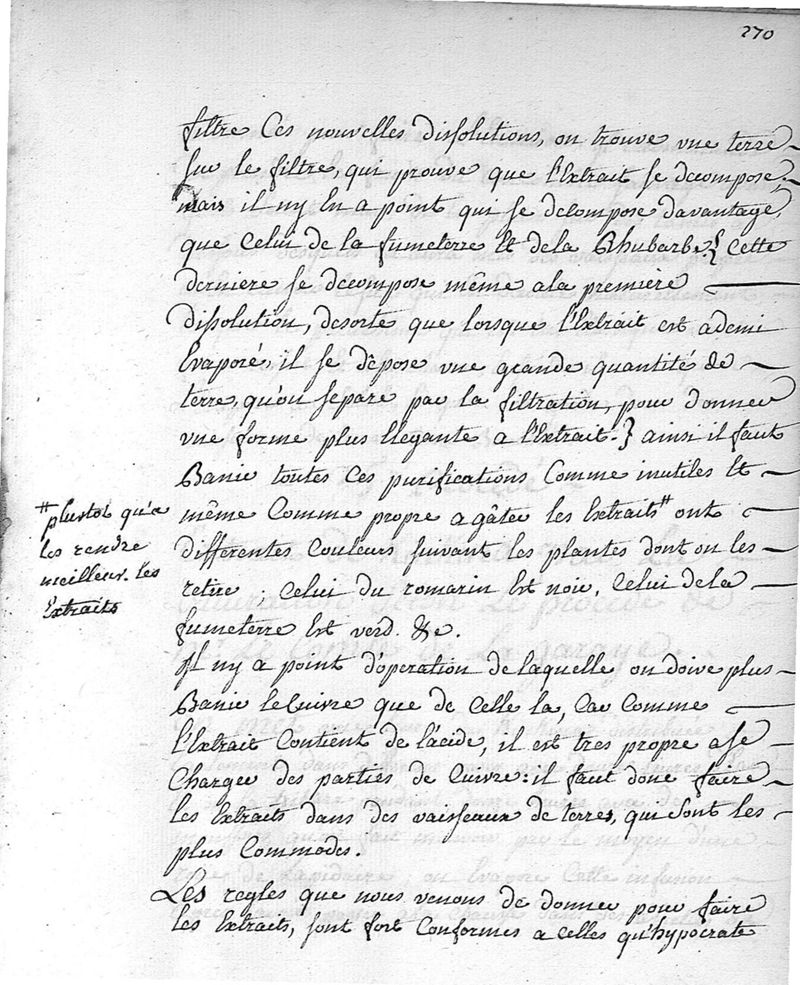 270
filtre Ces nouvelles dissolutions, on trouve vne terre
sur le filtre, qui prouve que l'Extrait se decompose;
mais il ny En a point qui se decompose davantage,
que Celui de la fumeterre Et dela Rhubarbe.{ Cette
derniere se decompose même ala premiere
dissolution, desorte que lorsque l'Extrait est ademi
Evaporé, il se dêpose vne grande quantité de
terre, qu'on separe par la filtration, pour donner
vne forme plus Elegante a l'Extrait.} ainsi il faut
Banir toutes Ces purifications Comme inutiles Et
même Comme propre agâter les Extraits # ont
differentes Couleurs suivant les plantes dont on les
retire; Celui du romarin Est noir, Celui dela
fumeterre Est verd. &c.
# plustot qu'a
les rendre
meilleur. les
Extraits
Il ny a point d'operation de laquelle on doive plus
Banir leCuivre que de Celle la, Car Comme
l'Extrait Contient de l'acide, il est tres propre ase
Charger des parties de Cuivre: il faut donc faire
les Extraits dans des vaisseaux de terres, qui sont les
plus Commodes.
Les regles que nous venons de donner pour faire
les Extraits, sont fort Conformes a Celles qu'hypocrate